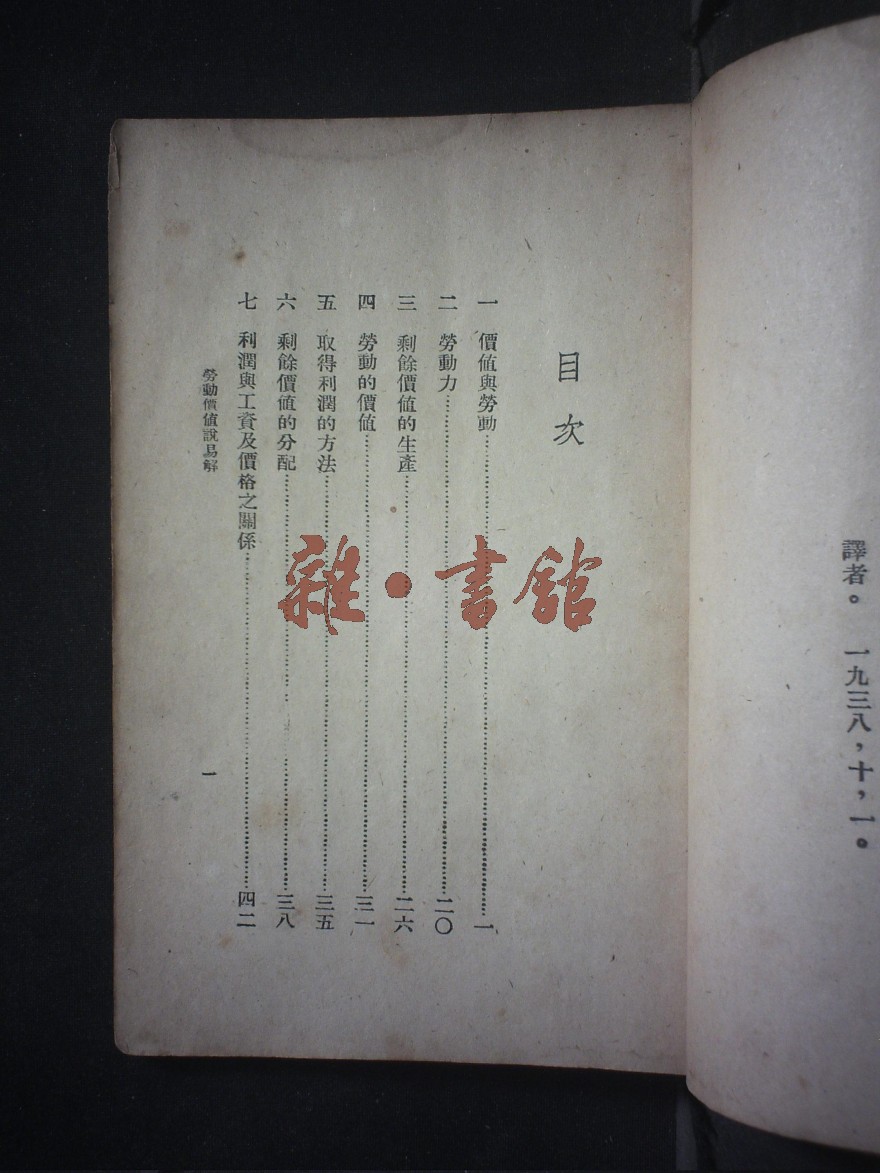 譯者。 一九三八，十，一。
目次
一 價值與勞動……一
二 勞動力……二〇
三 剩餘價值的生產……二六
四 勞動的價值……三一
五 取得利潤的方法……三五
六 剩餘價值的分配……三八
七 利潤與工資及價格之關係……四二
勞動價值說易解 一
雜·書館